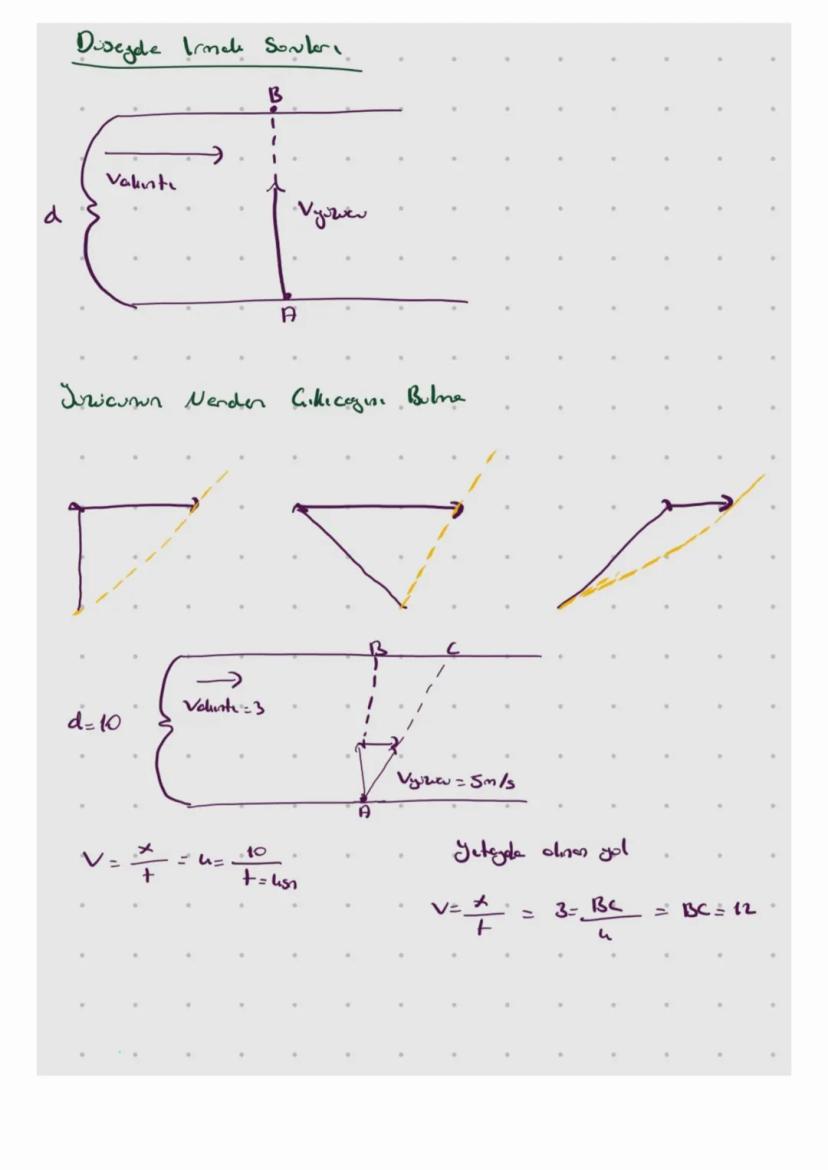 Düseyde Irmak Soruları
B
Vakıntı
d
Vyüzücü
A
Yüzücünün Nerden Çıkıcagını Bulma
B C
Vakıntı=3
d=10
Vyüzücü = 5m/s
A
V = x/t = 4 = 10/t = 4sn
Yatayda alınan yol
V = x/t = 3 = BC/4 = BC = 12